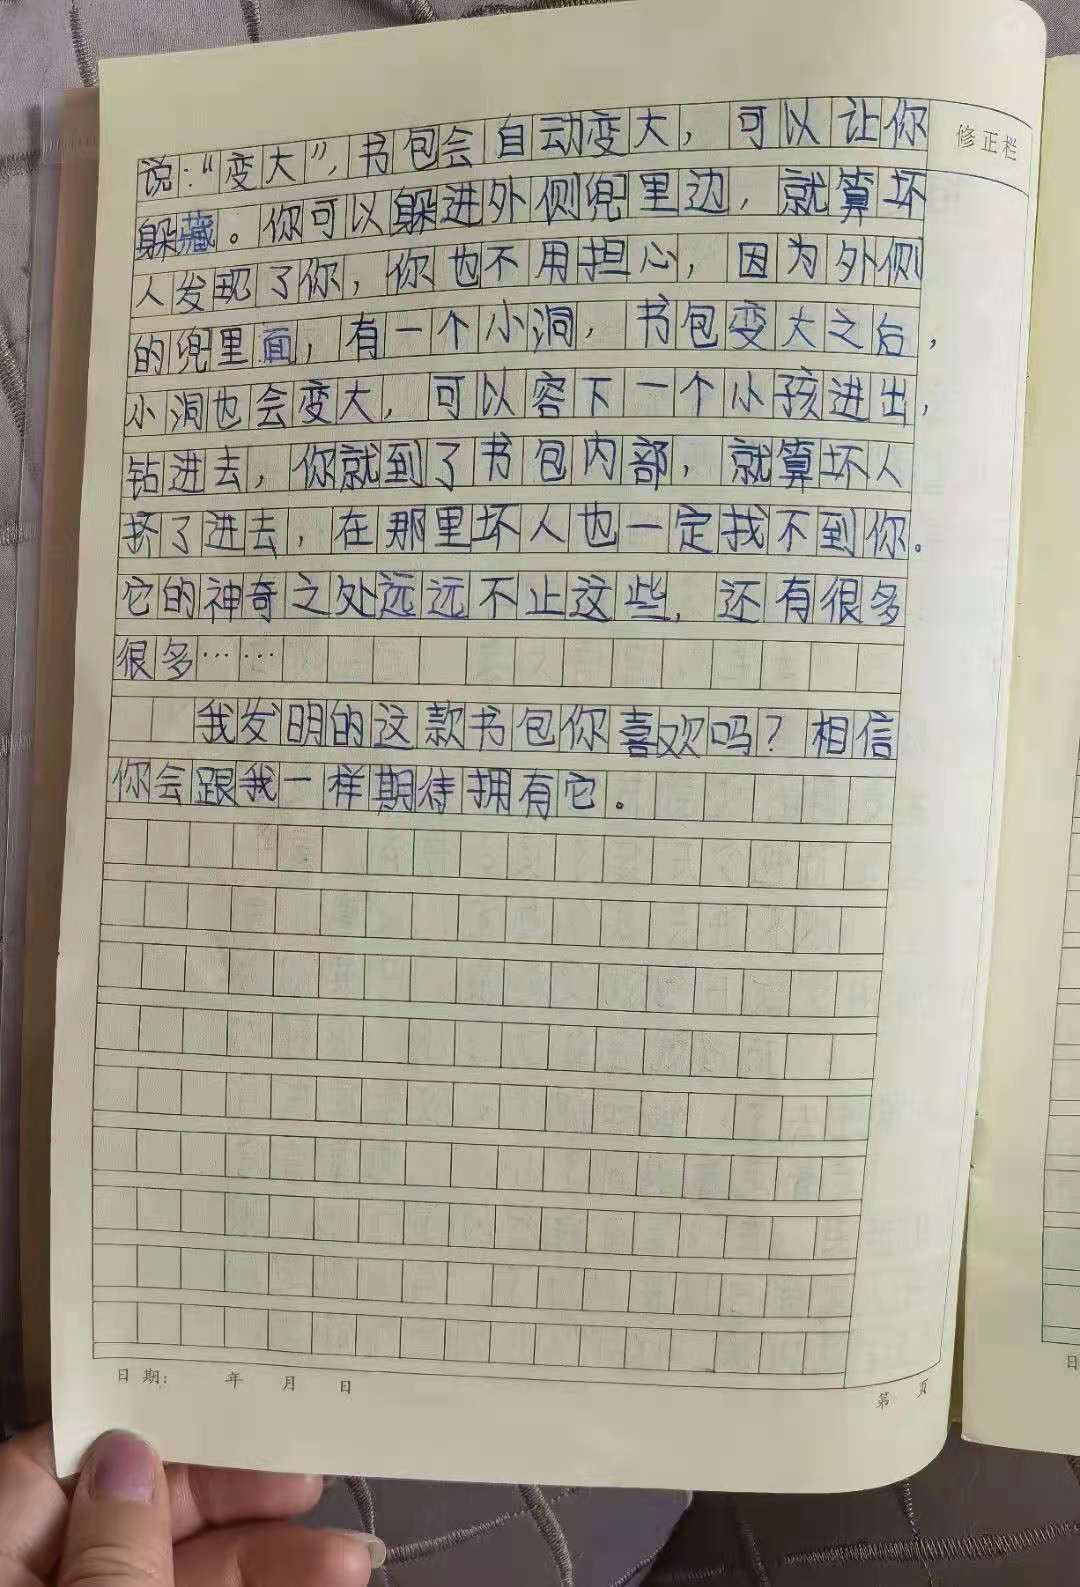 修正栏
说:“变大”,书包会自动变大,可以让你
躲藏。你可以躲进外侧兜里边,就算坏
人发现了你,你也不用担心,因为外侧
的兜里面,有一个小洞,书包变大之后,
小洞也会变大,可以容下一个小孩进出,
钻进去,你就到了书包内部,就算坏人
挤了进去,在那里坏人也一定找不到你。
它的神奇之处远远不止这些,还有很多
很多……
我发明的这款书包你喜欢吗?相信
你会跟我一样期待拥有它。
日期: 年 月 日
第 页
日